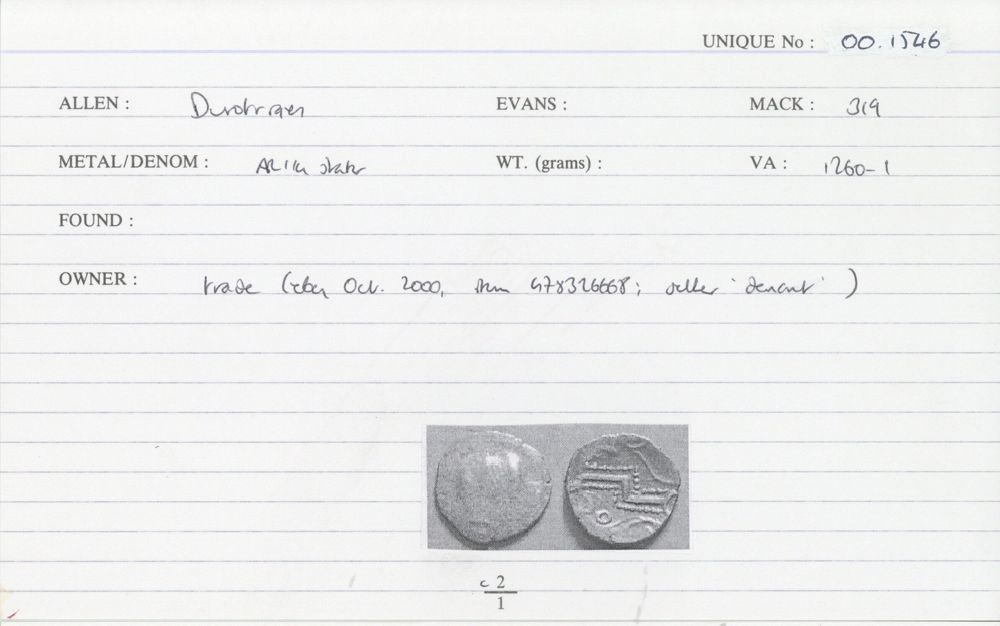 UNIQUE No : 00.1546
ALLEN : Durotrigen EVANS : MACK : 319
METAL/DENOM : AR 1/4 stater WT. (grams) : VA : 1260-1
FOUND :
OWNER : trade (ebay Oct. 2000, item 478326668; seller 'denant' )
c 2
1